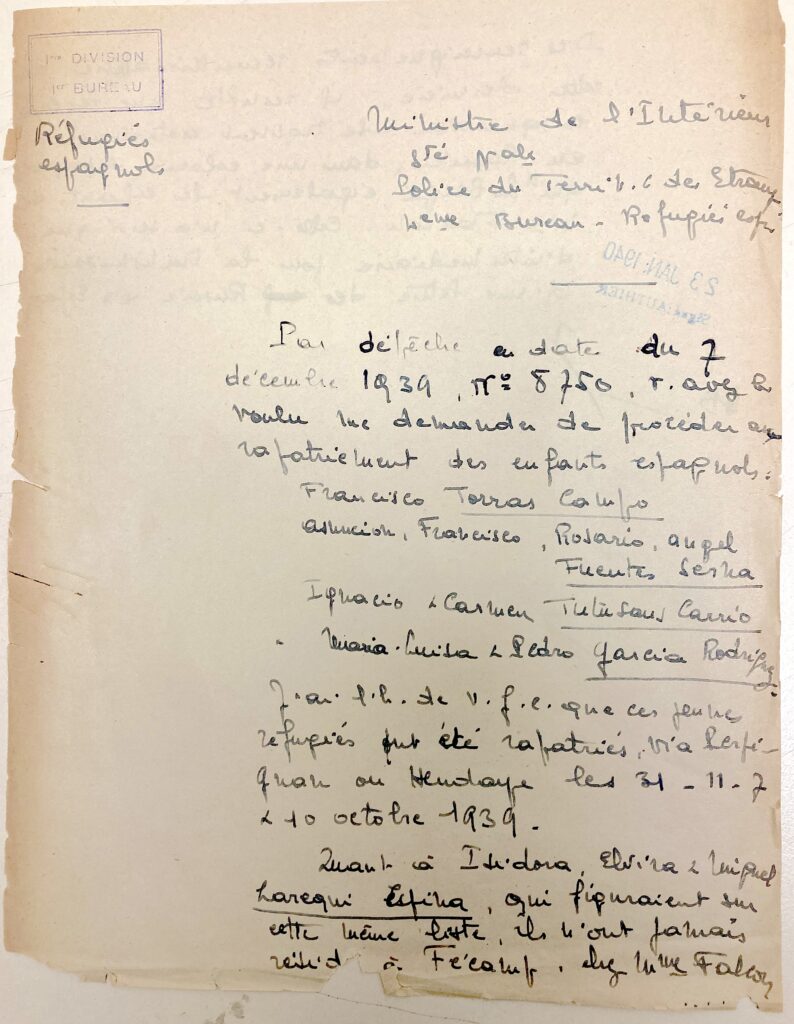 1ère DIVISION
1er BUREAU
Réfugiés
espagnols
Ministre de l'Intérieur
Sté Nale
Police du Territ. & des Etrang
4eme Bureau - Réfugiés esp
23 JAN. 1940
Par dépêche en date du 7
décembre 1939, N° 8750, v. avez b
voulu me demander de procéder au
rapatriement des enfants espagnols :
Francisco Torras Campo
Asuncion, Francisco, Rosario, angel
Fuentes Serna
Ignacio & Carmen Carrio
Maria-Luisa & Pedro Garcia Rodriguez
J'ai l'h. de v. f. c. que ces jeunes
réfugiés ont été rapatriés, via Perpi-
gnan ou Hendaye les 31 - 11 - 7
& 10 octobre 1939.
Quant à Isidora, Elvira & Miguel
Larequi Espina, qui figuraient sur
cette même liste, ils n'ont jamais
résidé à Fécamp, chez Mme Falcon
.....